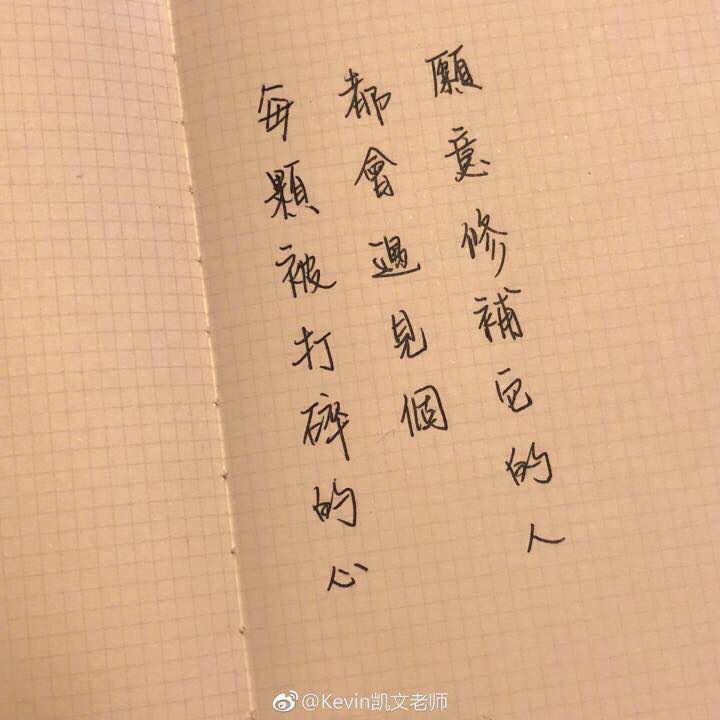 每顆被打碎的心
都會遇見個
願意修補它的人
@Kevin凯文老师